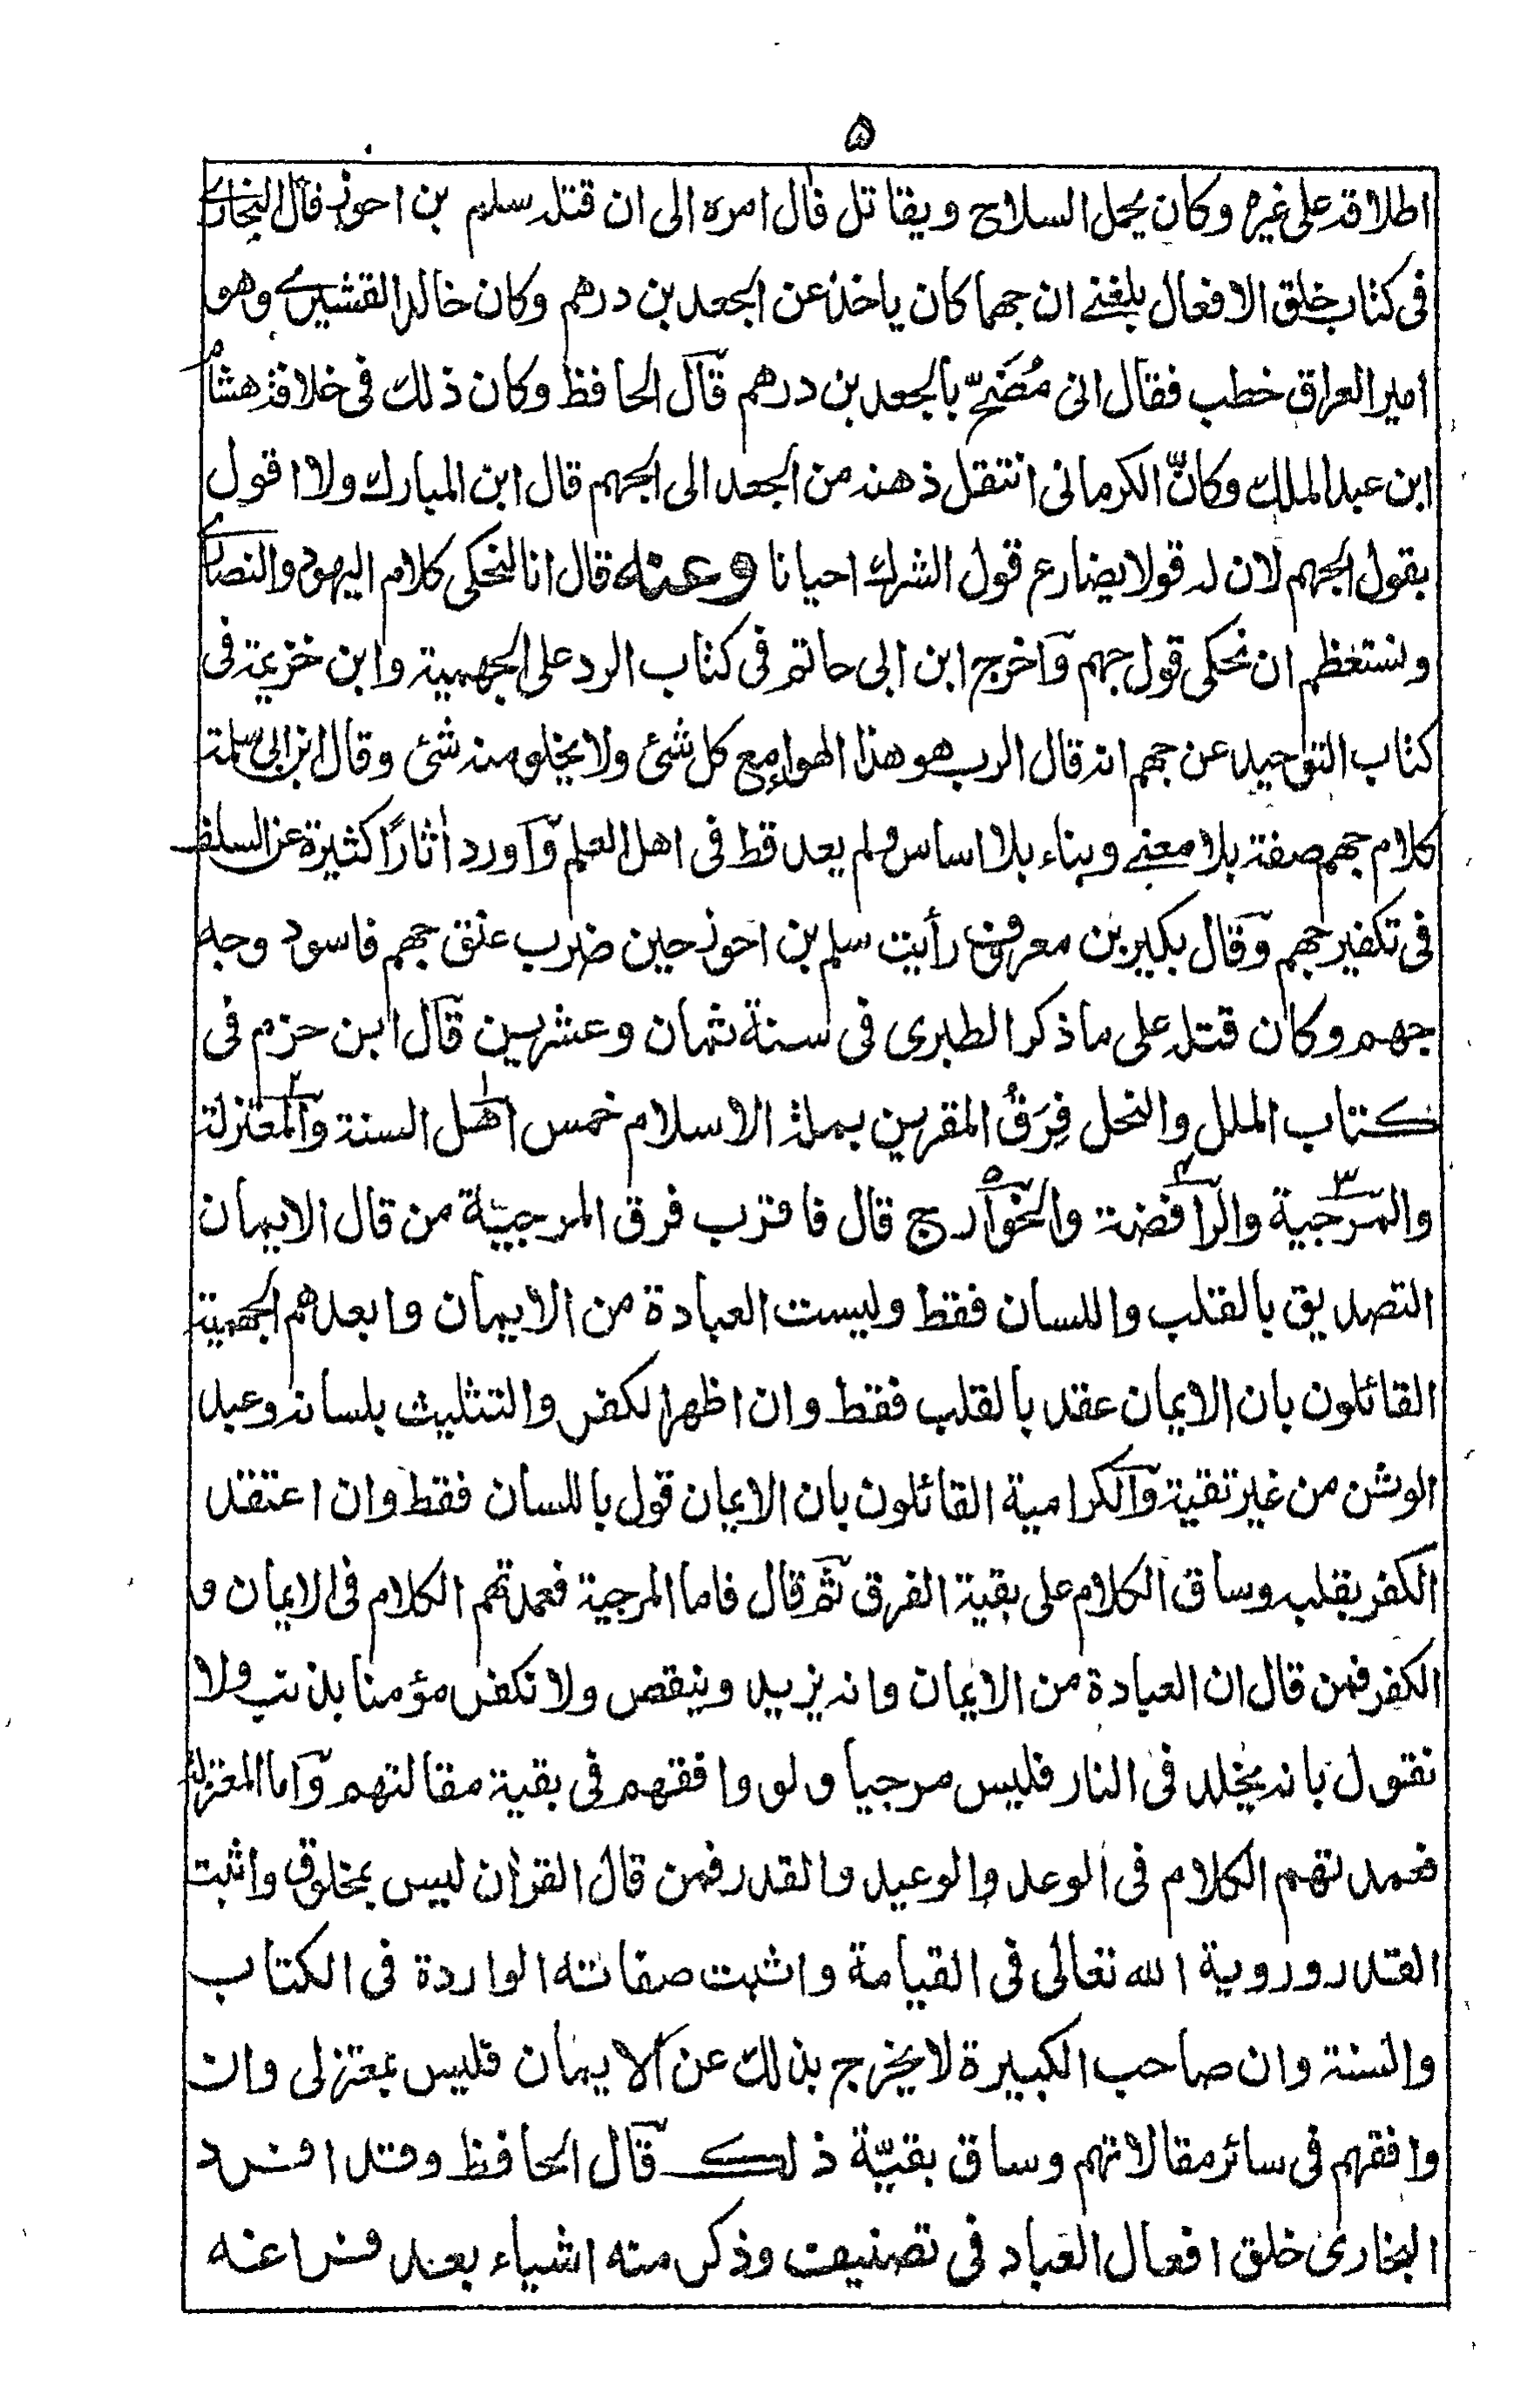 ۵
اطلاقه على غيره وكان يحمل السلاح ويقاتل فآل امره الى ان قتله سلم بن احوز قال البخاري
فى كتاب خلق الافعال بلغنے ان جهما كان ياخذ عن الجعد بن درهم وكان خالد القشيرے وهو
امير العراق خطب فقال انى مُضَحٍّ بالجعد بن درهم قال الحافظ وكان ذلك فى خلافة هشام
ابن عبد الملك وكانّ الكرمانى انتقل ذهنه من الجعد الى الجهم قال ابن المبارك ولا اقول
بقول الجهم لان له قولا يضارع قول الشرك احيانا وعنه قال انا لنحكى كلام اليهود والنصارے
ونستعظم ان نحكى قول جهم وآخرج ابن ابى حاتم فى كتاب الرد على الجهمية وابن خزيمة فى
كتاب التوحيد عن جهم انه قال الرب هو هذا الهواء مع كل شئ ولا يخلو منه شئ وقال ابن ابى سلمة
كلام جهم صفة بلا معنے وبناء بلا اساس ولم يعد قط فى اهل العلم وآورد اٰثارًا كثيرة عن السلف
فى تكفير جهم وقال بكير بن معروف رأيت سلم بن احوز حين ضرب عنق جهم فاسود وجه
جهم وكان قتله على ما ذكر الطبرى فى سنة ثمان وعشرين قال ابن حزم فى
كتاب الملل والنحل فِرَقُ المقرين بملة الاسلام خمس اهل السنة والمعتزلة
والمرجية والرافضة والخوارج قال فاقرب فرق المرجيّة من قال الايمان
التصديق بالقلب واللسان فقط وليست العبادة من الايمان وابعدهم الجهمية
القائلون بان الايمان عقد بالقلب فقط وان اظهر الكفر والتثليث بلسانه وعبد
الوثن من غير تقية والكرامية القائلون بان الايمان قول باللسان فقط وان اعتقد
الكفر بقلبه وساق الكلام على بقية الفرق ثم قال فاما المرجية فعمدتهم الكلام فى الايمان و
الكفر فمن قال ان العبادة من الايمان وانه يزيد وينقص ولا نكفر مؤمنا بذنب ولا
نقول بانه يخلد فى النار فليس مرجيا ولو وافقهم فى بقية مقالتهم وآما المعتزلة
فعمدتهم الكلام فى الوعد والوعيد والقدر فمن قال القراٰن ليس بمخلوق واثبت
القدر وروية الله تعالى فى القيامة واثبت صفاته الواردة فى الكتاب
والسنة وان صاحب الكبيرة لا يخرج بذلك عن الايمان فليس بمعتزلى وان
وافقهم فى سائر مقالاتهم وساق بقيّة ذلك قال الحافظ وقد افرد
البخارى خلق افعال العباد فى تصنيف وذكر منه اشياء بعد فراغه